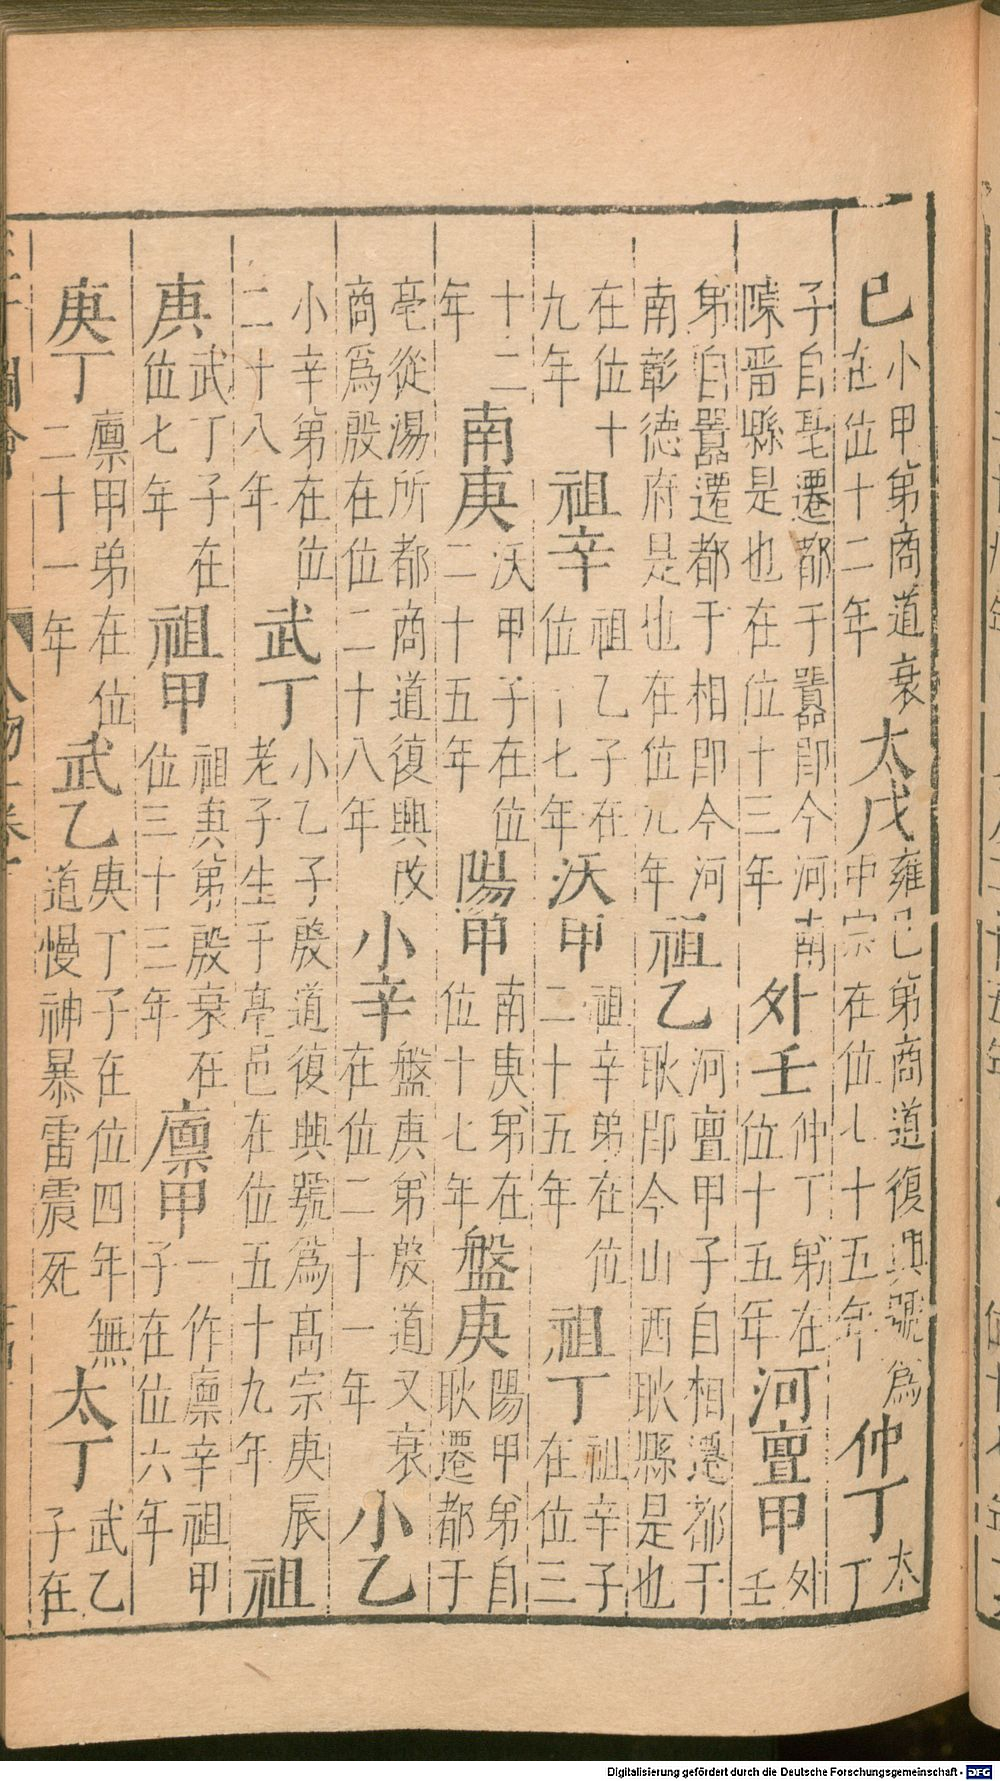 已小甲弟商道衰在位十二年太戊雍已弟商道復興號為中宗在位七十五年仲丁太丁
子自亳遷都于囂即今河南陳畱縣是也在位十三年外壬仲丁弟在位十五年河亶甲外壬
弟自囂遷都于相即今河南彰德府是也在位元年祖乙河亶甲子自相遷都于耿即今山西耿縣是也
在位十九年祖辛祖乙子在位十七年沃甲祖辛弟在位二十五年祖丁祖辛子在位三
十二年南庚沃甲子在位二十五年陽甲南庚弟在位十七年盤庚陽甲弟自耿遷都于
亳從湯所都商道復興改商為殷在位二十八年小辛盤庚弟殷道又衰在位二十一年小乙
小辛弟在位二十八年武丁小乙子殷道復興號為高宗庚辰老子生于亳邑在位五十九年祖
庚武丁子在位七年祖甲祖庚弟殷衰在位三十三年廩甲一作廩辛祖甲子在位六年
庚丁廩甲弟在位二十一年武乙庚丁子在位四年無道慢神暴雷震死太丁武乙子在
Digitalisierung gefördert durch die Deutsche Forschungsgemeinschaft - DFG